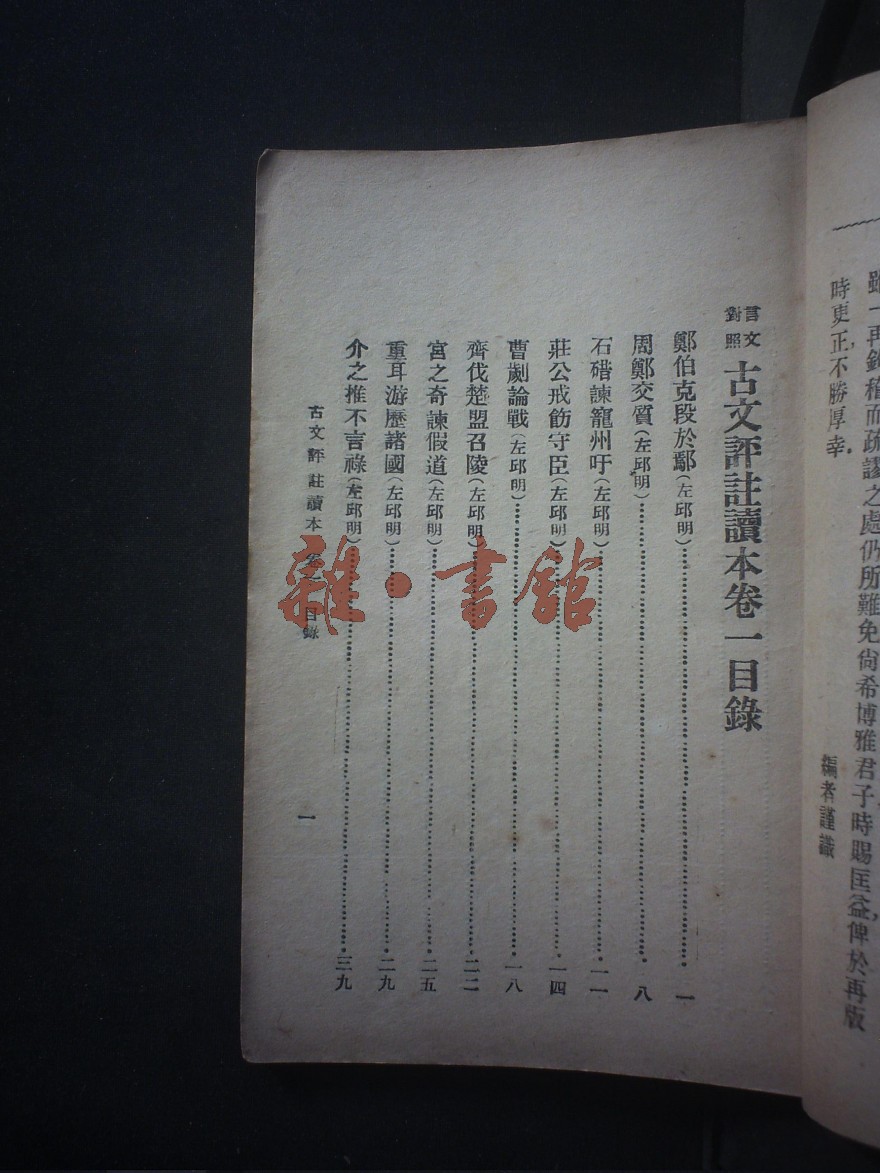 雖一再鈎稽而疏謬之處仍所難免尙希博雅君子時賜匡益，俾於再版
時更正，不勝厚幸．
編者謹識
言文對照 古文評註讀本卷一目錄
鄭伯克段於鄢（左邱明）……一
周鄭交質（左邱明）……八
石碏諫寵州吁（左邱明）……一一
莊公戒飭守臣（左邱明）……一四
曹劌論戰（左邱明）……一八
齊伐楚盟召陵（左邱明）……二二
宮之奇諫假道（左邱明）……二五
重耳游歷諸國（左邱明）……二九
介之推不言祿（左邱明）……三九
古文評註讀本 卷一 目錄 一
雜·書館